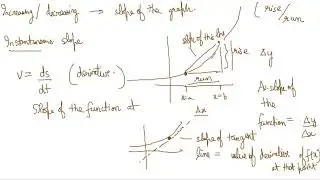 Increasing / decreasing → slope of the graph.
(rise / run
Instantaneous slope
slope of this line
rise Δy
v = ds/dt (derivative.
run
x=a x=b
Δx
Av. slope of the function = Δy/Δx
Slope of the function at
slope of tangent
line = value of derivative of f(x)
at that point